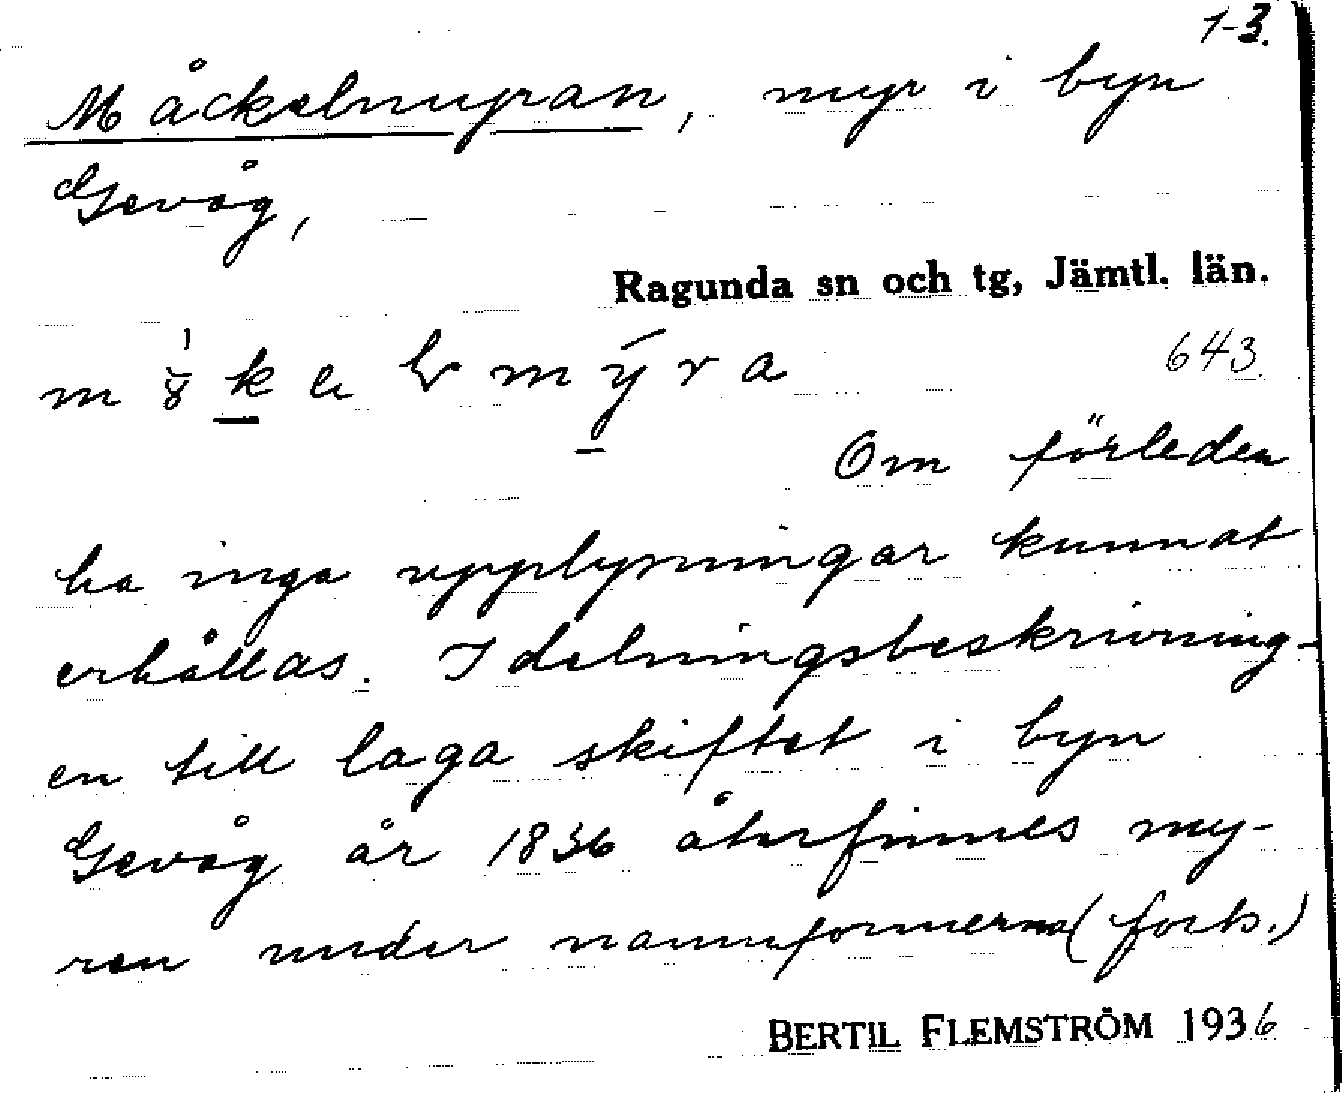 1-3.
Måckelmyran, myr i byn
Gevåg,
Ragunda sn och tg, Jämtl. län.
643
Om förleden
ha inga upplysningar kunnat
erhållas. I delningsbeskrivning-
en till laga skiftet i byn
Gevåg år 1836 återfinnes my-
ren under namnformerna (forts.)
BERTIL FLEMSTRÖM 1936